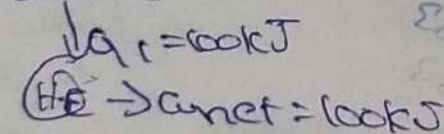 ↓Q₁ = 100kJ
HE → Wnet = 100kJ